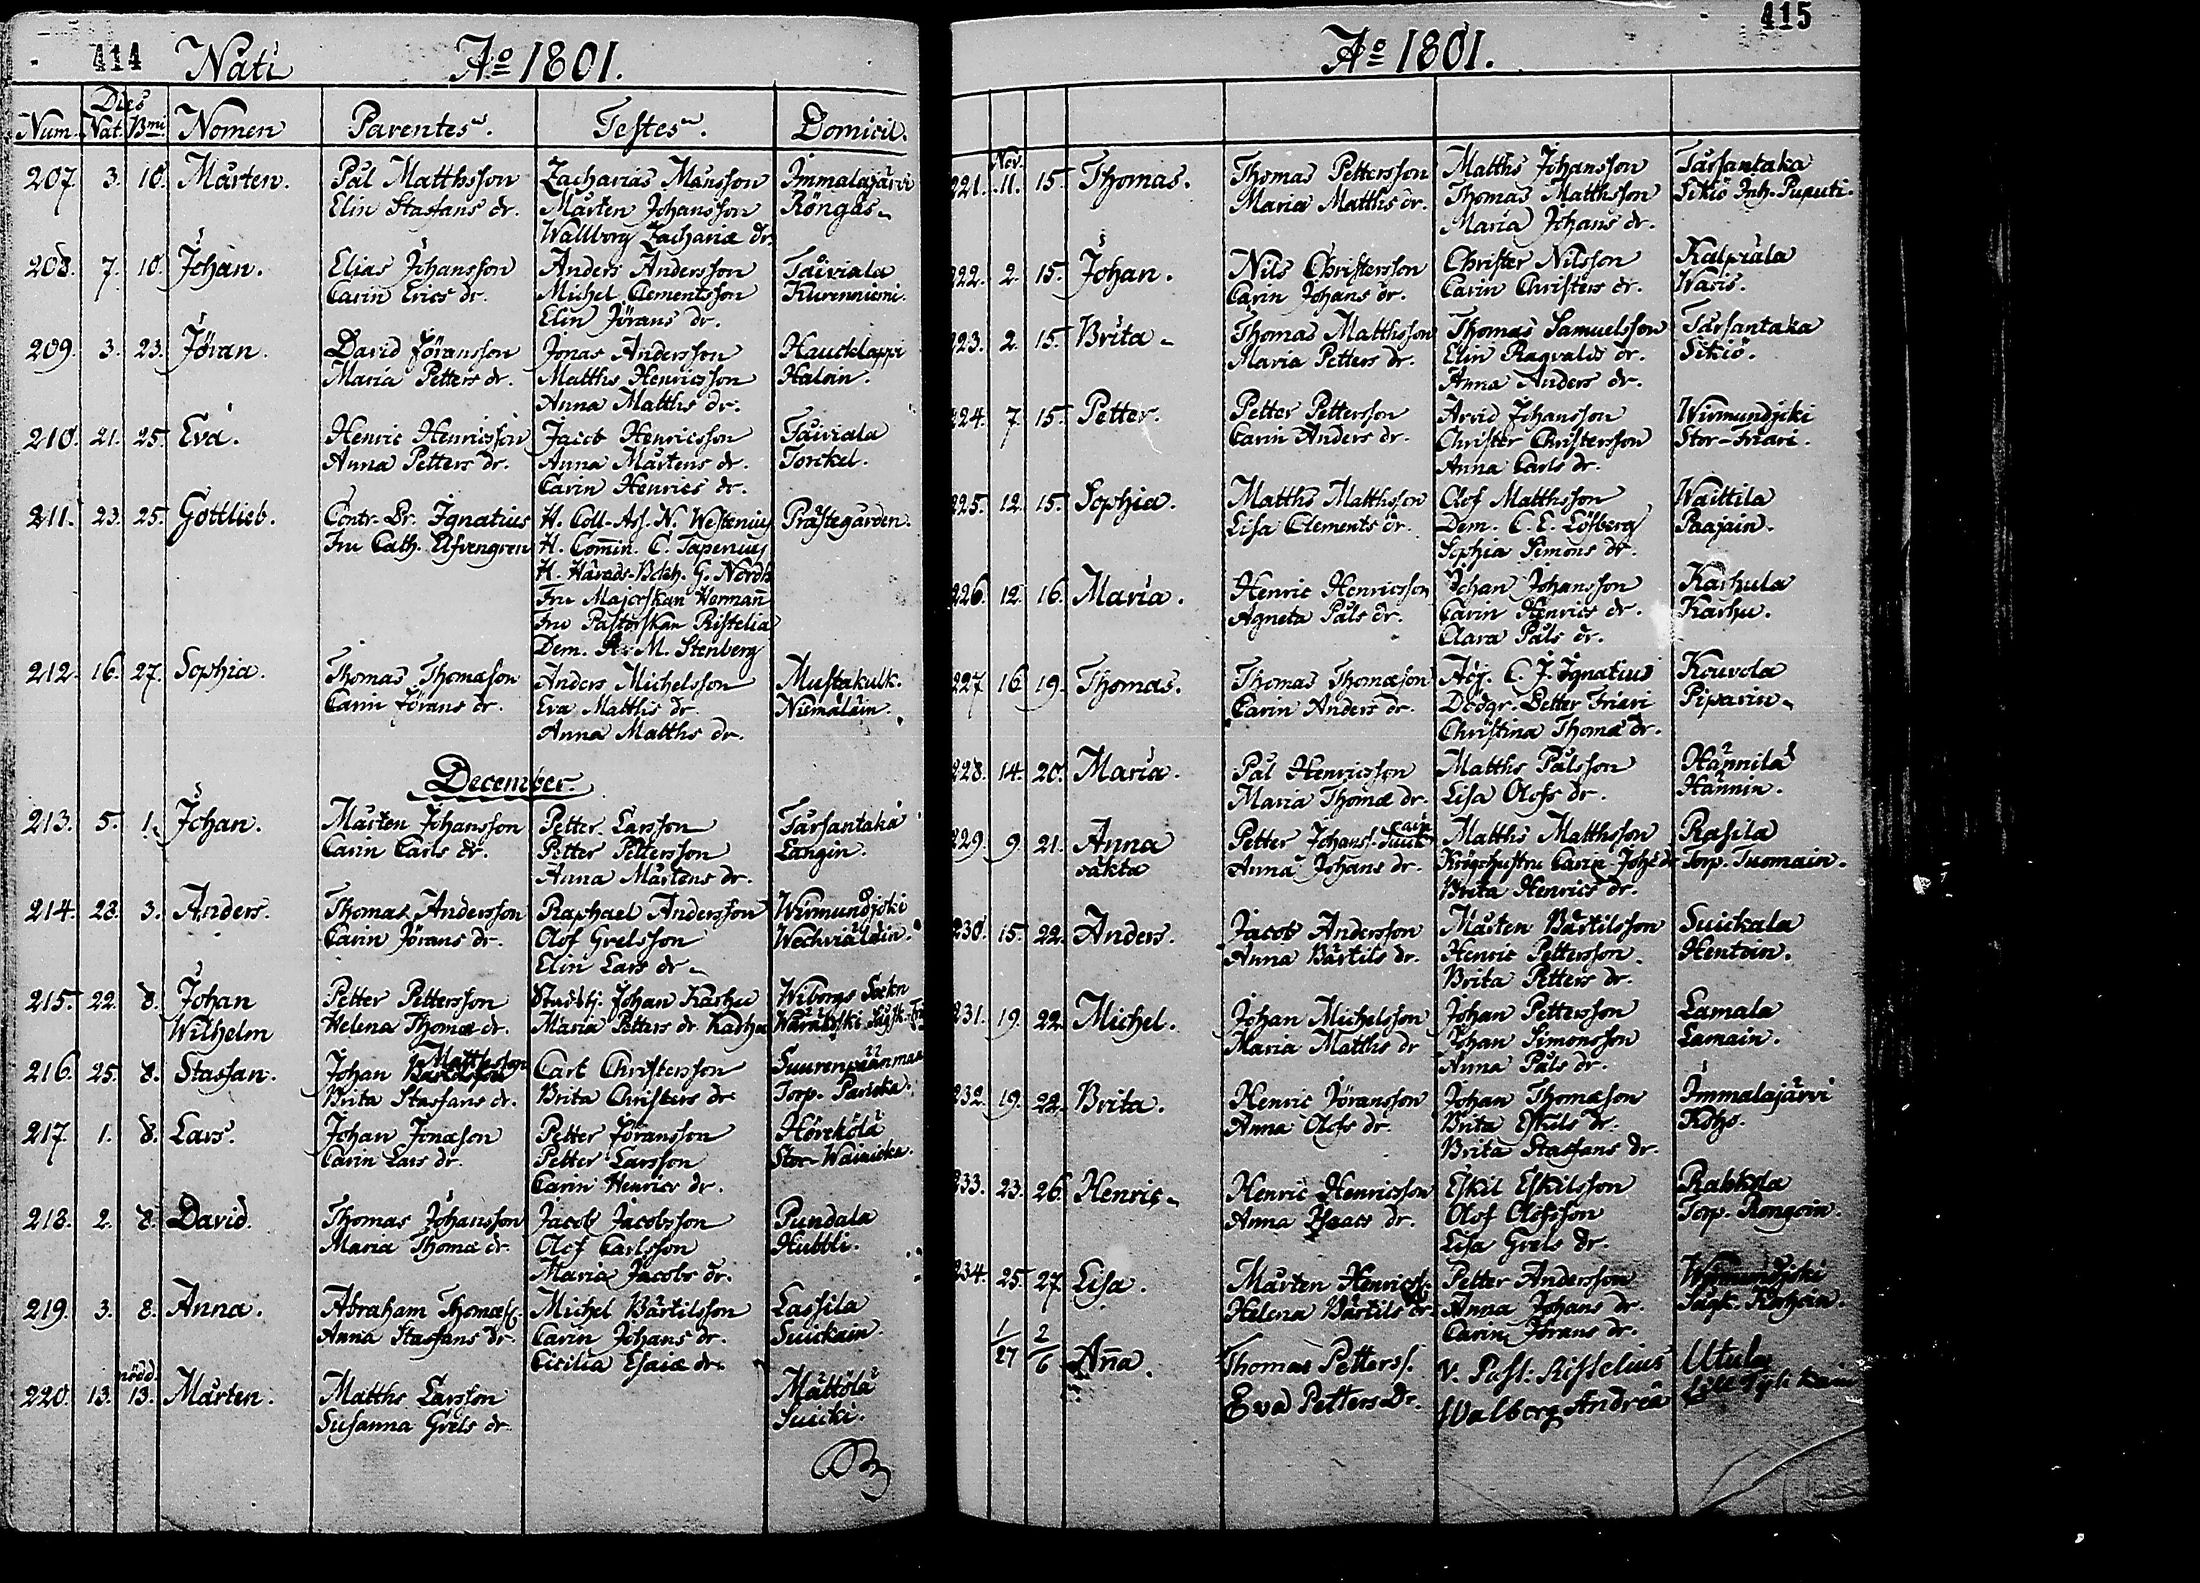 414 Nati Aº 1801.
Num. Dies Nat. Bmi Nomen Parentes. Testes. Domicil.
207. 3. 10. Mårten. Pål Matthsson Zacharias Månsson Immalajärvi
Elin Staffans dr. Mårten Johansson Röngäs
Wallborg Zachariæ dr.
208. 7. 10. Johan. Elias Johansson Anders Andersson Taiviala
Carin Erics dr. Michel Clementsson Kurenniemi.
Elin Jörans dr.
209. 3. 23. Jöran. David Jöransson Jonas Andersson Haucklappi
Maria Petters dr. Matths Henricsson Haloin.
Anna Matths dr.
210. 21. 25. Eva. Henric Henricsson Jacob Henricsson Taiviala
Anna Petters dr. Anna Mårtens dr. Torckel.
Carin Henrics dr.
211. 23. 25. Gottlieb. Contr. Br. Ignatius H. Coll-Ass. N. Westenius Prästegården.
Fru Cath. Elfvengren H. Comin. C. Tapenius
H. Härads-Bokh. G. Nordh
Fru Majorskan Hermann
Fru Pastorskan Ristelia
Dem. A. M. Stenberg
212. 16. 27. Sophia. Thomas Thomæson Anders Michelsson Mustakulk.
Carin Jörans dr. Eva Matths dr. Niemaläin.
Anna Matths dr.
December.
213. 5. 1. Johan. Mårten Johansson Petter Larsson Tarfantaka
Carin Carls dr. Petter Pettersson Langin.
Anna Mårtens dr.
214. 28. 3. Anders. Thomas Andersson Raphael Andersson Wirmundjoki
Carin Jörans dr. Olof Grelsson Wechviäläin.
Elin Lars dr.
215. 22. 8. Johan Petter Pettersson Johan Karhu Wiborgs Sockn
Wilhelm Helena Thomæ dr. Maria Petters dr.
216. 25. 8. Staffan. Johan Matthsson Carl Christersson
Brita Staffans dr. Brita Christers dr. Torp. Paricka.
217. 1. 8. Lars. Johan Jonæson Petter Jöransson Höreholä
Carin Lars dr. Petter Larsson Stor-Wainicka.
Carin Henrics dr.
218. 2. 8. David. Thomas Johansson Jacob Jacobsson Pundala
Maria Thomæ dr. Olof Carlsson Hubbli.
Maria Jacobs dr.
219. 3. 8. Anna. Abraham Thomæss. Michel Bärtilsson Lassila
Anna Staffans dr. Carin Johans dr. Suickain.
Cicilia Esaiæ dr.
nödd.
220. 13. 13. Mårten. Matths Larsson Mättölä
Susanna Grels dr. Suicki.
415
Aº 1801.
Nov.
221. 11. 15. Thomas. Thomas Pettersson Matths Johansson Tarfantaka
Maria Matths dr. Thomas Matthsson Sikiö Inh. Puputi.
Maria Johans dr.
222. 2. 15. Johan. Nils Christersson Christer Nilsson Kalpiala
Carin Johans dr. Carin Christers dr. Waris.
223. 2. 15. Brita Thomas Matthsson Thomas Samuelsson Tarfantaka
Maria Petters dr. Elin Ragvalds dr. Sikiö.
Anna Anders dr.
224. 7. 15. Petter. Petter Pettersson Arvid Johansson Wirmundjoki
Carin Anders dr. Christer Christersson Stor-Friari.
Anna Carls dr.
225. 12. 15. Sophia. Matths Matthsson Olof Matthsson Waittila
Lisa Clements dr. Dem. C. E. Löfberg Paajain.
Sophia Simons dr.
226. 12. 16. Maria. Henric Henricsson Johan Johansson Karhula
Agneta Påls dr. Carin Henrics dr. Karhu.
Clara Påls dr.
227. 16. 19. Thomas. Thomas Thomæson Adj. C. J. Ignatius Kouvola
Carin Anders dr. Dödgr. Petter Friari Piparin
Christina Thomæ dr.
228. 14. 20. Maria. Pål Henricsson Matths Pålsson Hännilä
Maria Thomæ dr. Lisa Olofs dr. Hännin.
229. 9. 21. Anna Petter Johanss. Matths Matthsson Rasila
oäkta Anna Johans dr. Carin Joh: dr Torp. Tuomain.
Brita Henrics dr.
230. 15. 22. Anders. Jacob Andersson Mårten Bärtilsson Suickala
Anna Bärtils dr. Henric Pettersson Hentoin.
Brita Petters dr.
231. 19. 22. Michel. Johan Michelsson Johan Pettersson Lamala
Maria Matths dr Johan Simonsson Lamain.
Anna Påls dr.
232. 19. 22. Brita. Henric Jöransson Johan Thomæson Immalajärvi
Anna Olofs dr. Brita Eskils dr. Koho.
Brita Staffans dr.
233. 23. 26. Henric Henric Henricsson Eskil Eskilsson Rabkola
Anna Isaacs dr. Olof Olofsson Torp. Rongoin.
Lisa Grels dr.
234. 25. 27. Lisa. Mårten Henricss. Petter Andersson Wirmundjoki
Helena Bärtils dr. Anna Johans dr.
Carin Jörans dr.
1/27 2/6 Aña. Thomas Petterss. V. Past. Risselius Utula
Eva Petters Dr. Walborg Andreæ